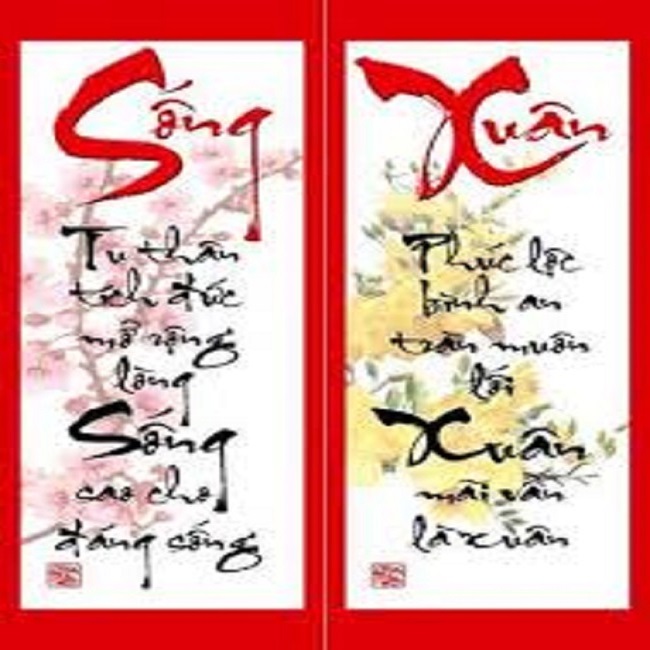 Sống
Tu thân
tích đức
mở rộng
lòng
Sống
cao cho
đáng sống
Xuân
Phúc lộc
bình an
tràn muôn
lối
Xuân
mãi vẫn
là xuân